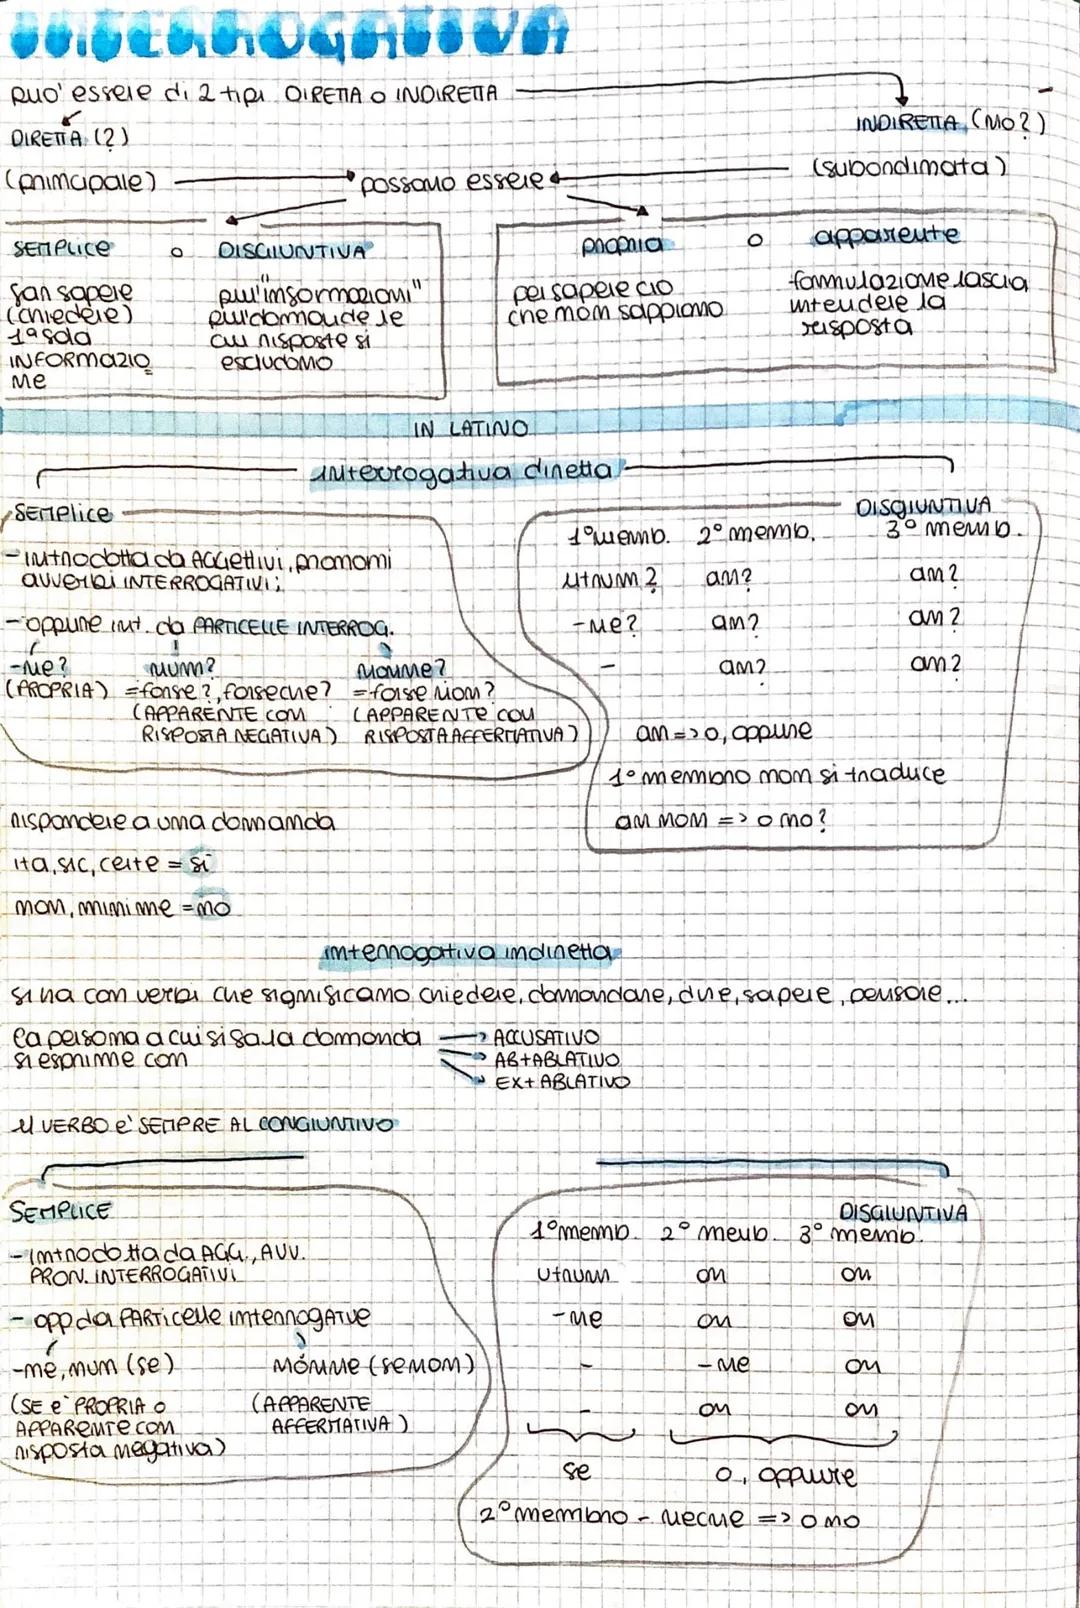 INTERROGATIVA
può essere di 2 tipi DIRETTA O INDIRETTA
DIRETTA (?)
INDIRETTA (NO?)
(principale)
possono essere
(subordinata)
SEMPLICE o DISGIUNTIVA
propria o apparente
fan sapere
(chiedere)
1ª sola
INFORMAZIO
NE
più "informazioni"
più domande le
cui risposte si
escludono
per sapere ciò
che non sappiamo
formulazione lascia
intendere la
risposta
IN LATINO
interrogativa diretta
SEMPLICE
- introdotta da AGGETTIVI, pronomi
avverbi INTERROGATIVI;
- oppure int. da PARTICELLE INTERROG.
-ne? num? nonne?
(PROPRIA) =forse?, forse che? =forse non?
(APPARENTE CON (APPARENTE CON
RISPOSTA NEGATIVA) RISPOSTA AFFERMATIVA)
DISGIUNTIVA
1° memb. 2° memb. 3° memb.
utrum? an? an?
-ne? an? an?
- an? an?
an => o, oppure
1° membro non si traduce
an non => o no?
rispondere a una domanda
ita, sic, certe = sì
non, minime = no
interrogativa indiretta
si ha con verbi che significano chiedere, domandare, dire, sapere, pensare...
la persona a cui si fa la domanda
si esprime con
ACCUSATIVO
AB+ABLATIVO
EX+ ABLATIVO
il VERBO è SEMPRE AL CONGIUNTIVO
SEMPLICE
- introdotta da AGG., AVV.
PRON. INTERROGATIVI
- opp da PARTICELLE interrogative
-ne, num (se) nonne (se non)
(SE è PROPRIA O
APPARENTE con
risposta negativa)
(APPARENTE
AFFERMATIVA)
DISGIUNTIVA
1° memb. 2° memb. 3° memb.
utrum an an
-ne an an
- -ne an
- an an
se o, oppure
2° membro - necne => o no